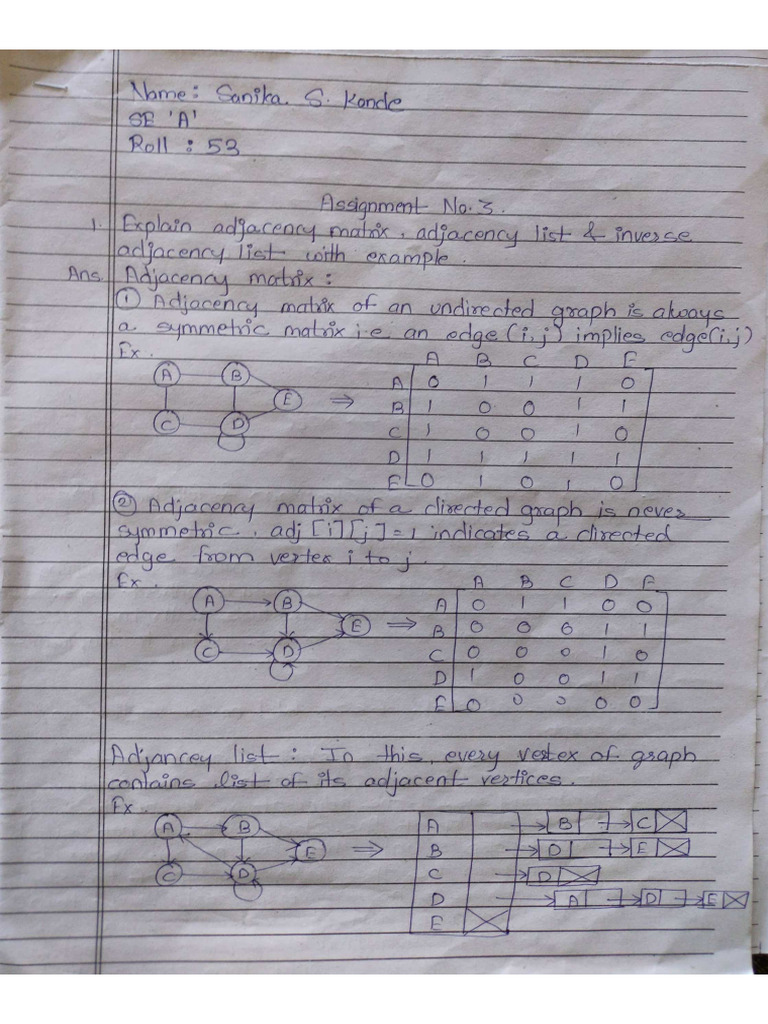 Name: Sanika. S. Konde
SE 'A'
Roll : 53
Assignment No. 3.
1. Explain adjacency matrix, adjacency list & inverse
adjacency list with example.
Ans. Adjacency matrix :
① Adjacency matrix of an undirected graph is always
a symmetric matrix i.e an edge (i,j) implies edge(i,j)
Ex.
A B C D E
A 0 1 1 1 0
B 1 0 0 1 1
C 1 0 0 1 0
D 1 1 1 1 1
E 0 1 0 1 0
A B E ⇒
C D
② Adjacency matrix of a directed graph is never
symmetric. adj [i][j]=1 indicates a directed
edge from vertex i to j.
Ex.
A B C D E
A 0 1 1 0 0
B 0 0 0 1 1
C 0 0 0 1 0
D 1 0 0 1 1
E 0 0 0 0 0
A B E ⇒
C D
Adjancey list : In this, every vertex of graph
contains list of its adjacent vertices.
Ex.
A B E ⇒
C D
A B C
B D E
C D
D A D E
E